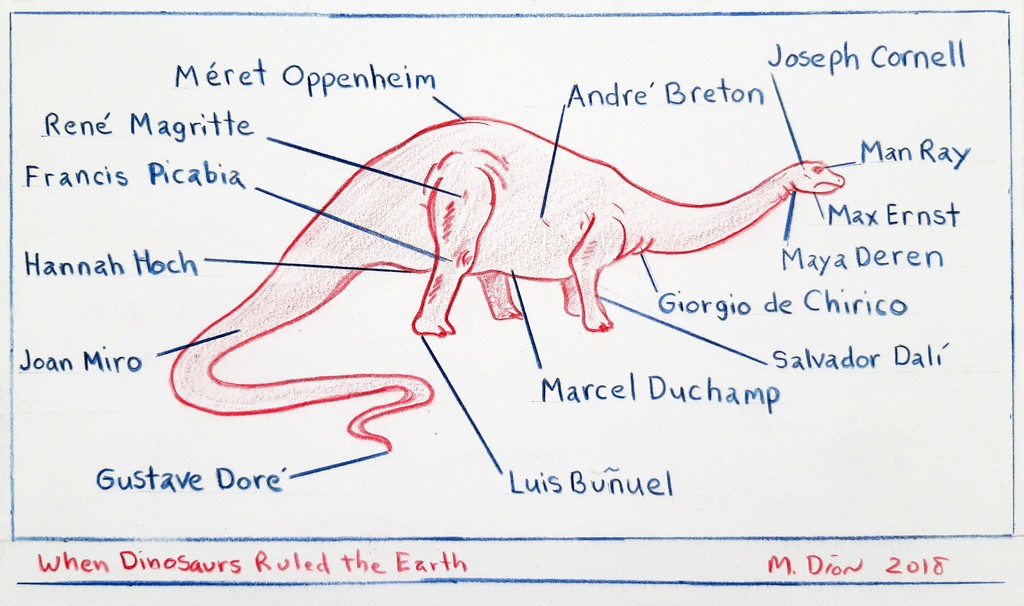 Joseph Cornell
Méret Oppenheim
André Breton
René Magritte
Man Ray
Francis Picabia
Max Ernst
Hannah Hoch
Maya Deren
Giorgio de Chirico
Joan Miro
Salvador Dalí
Marcel Duchamp
Gustave Doré
Luis Buñuel
When Dinosaurs Ruled the Earth
M. Dion 2018